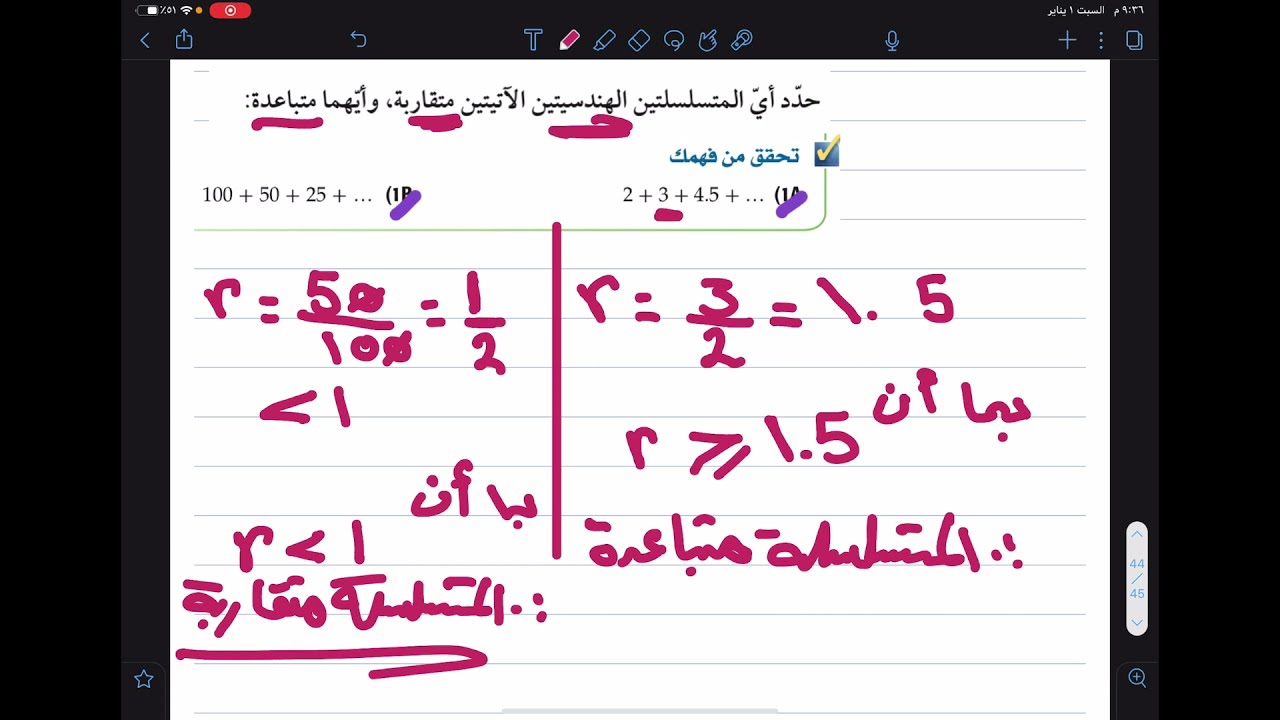 ٩:٣٦ م السبت ١ يناير
٥١٪
حدّد أيّ المتسلسلتين الهندسيتين الآتيتين متقاربة، وأيّهما متباعدة:
تحقق من فهمك
2 + 3 + 4.5 + … (1A
100 + 50 + 25 + … (1B
r = 3/2 = 1.5
بما أن
r ⩾ 1.5
∴ المتسلسلة متباعدة
r = 50/100 = 1/2
< 1
بما أن
r < 1
∴ المتسلسلة متقاربة
44
45